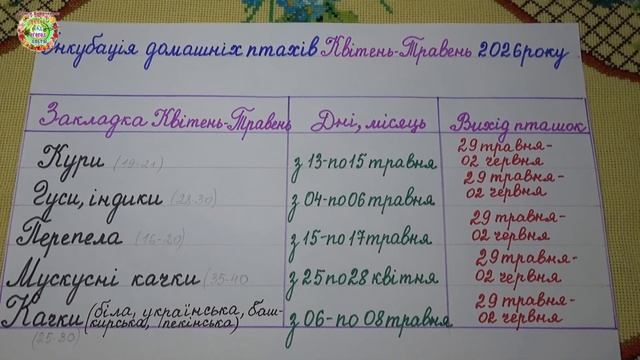 Інкубація домашніх птахів Квітень-Травень 2026 року
Закладка Квітень-Травень Дні, місяць Вихід пташок
Кури (19-21) з 13-по 15 травня 29 травня-02 червня
Гуси, індики (28-30) з 04-по 06 травня 29 травня-02 червня
Перепела (16-20) з 15-по 17 травня 29 травня-02 червня
Мускусні качки (35-40 з 25 по 28 квітня 29 травня-02 червня
Качки (біла, українська, баш-
кирська, пекінська) з 06-по 08 травня 29 травня-02 червня
(25-30)